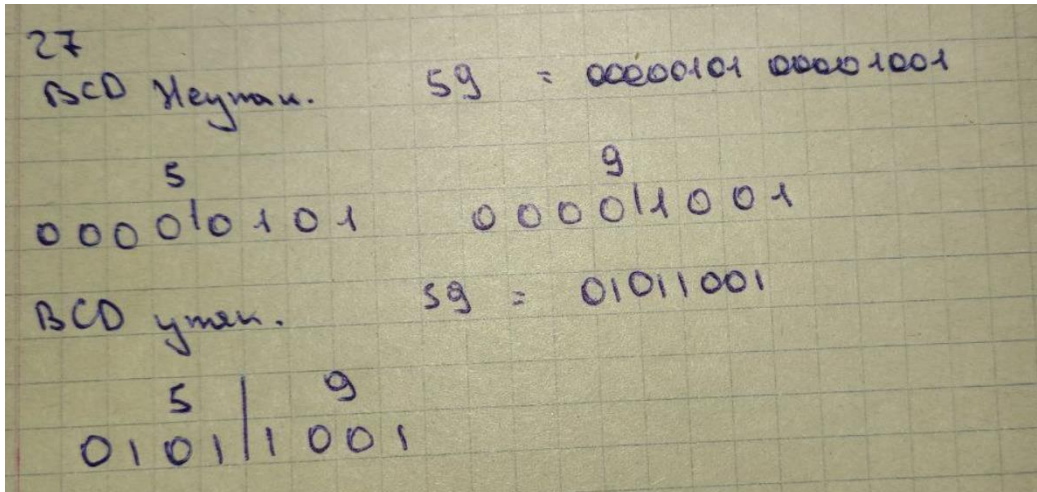 27
BCD Неупак. 59 = 00000101 00001001
5 9
0000|0101 0000|1001
BCD упак. 59 = 01011001
5 | 9
0101|1001